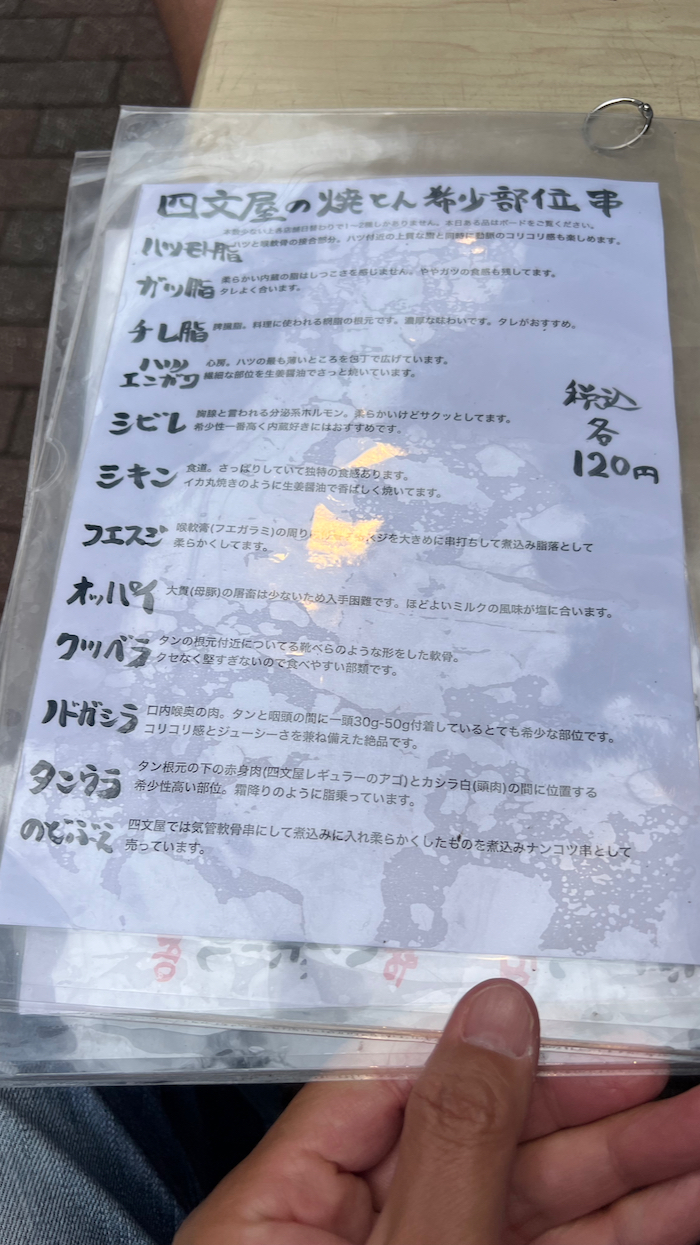 四文屋の焼とん希少部位串
本数少ない上各店舗日替わりで1〜2種しかありません。本日ある品はボードをご覧ください。
ハツモト脂 ハツと喉軟骨の接合部分。ハツ付近の上質な脂と同時に動脈のコリコリ感も楽しめます。
ガツ脂 柔らかい内蔵の脂はしつこさを感じません。ややガツの食感も残してます。
タレよく合います。
チレ脂 脾臓脂。料理に使われる網脂の根元です。濃厚な味わいです。タレがおすすめ。
ハツ
エンガワ 心房。ハツの最も薄いところを包丁で広げています。
繊細な部位を生姜醤油でさっと焼いています。
税込
各
120円
シビレ 胸腺と言われる分泌系ホルモン。柔らかいけどサクッとしてます。
希少性一番高く内蔵好きにはおすすめです。
シキン 食道。さっぱりしていて独特の食感あります。
イカ丸焼きのように生姜醤油で香ばしく焼いてます。
フエスジ 喉軟膏(フエガラミ)の周り スジを大きめに串打ちして煮込み脂落として
柔らかくしてます。
オッパイ 大貫(母豚)の屠畜は少ないため入手困難です。ほどよいミルクの風味が塩に合います。
クツベラ タンの根元付近についてる靴べらのような形をした軟骨。
クセなく堅すぎないので食べやすい部類です。
ノドガシラ 口内喉奥の肉。タンと咽頭の間に一頭30g-50g付着しているとても希少な部位です。
コリコリ感とジューシーさを兼ね備えた絶品です。
タンウラ タン根元の下の赤身肉(四文屋レギュラーのアゴ)とカシラ白(頭肉)の間に位置する
希少性高い部位。霜降りのように脂乗っています。
のどぶえ 四文屋では気管軟骨串にして煮込みに入れ柔らかくしたものを煮込みナンコツ串として
売っています。